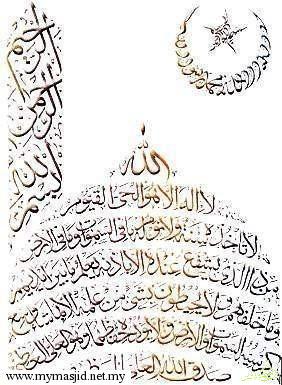 بسم الله الرحمن الرحيم
لا اله الا الله محمد رسول الله
الله
لا اله الا هو الحي القيوم
لا تاخذه سنة ولا نوم له ما في السموات وما في الارض
من ذا الذي يشفع عنده الا باذنه يعلم ما بين ايديهم
وما خلفهم ولا يحيطون بشيء من علمه الا بما شاء وسع
كرسيه السموات والارض ولا يؤده حفظهما وهو العلي العظيم
صدق الله العلي العظيم
www.mymasjid.net.my